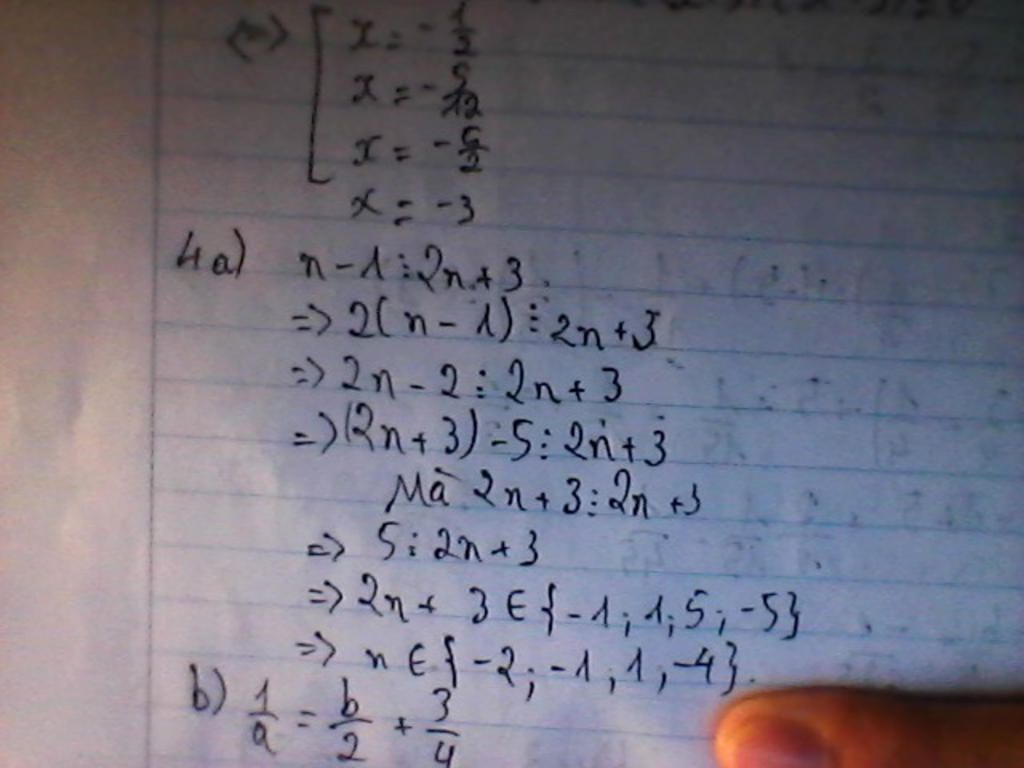 <=> [ x = -1/2
x = -5/12
x = -5/2
x = -3
4a) n - 1 ⋮ 2n + 3
=> 2(n - 1) ⋮ 2n + 3
=> 2n - 2 ⋮ 2n + 3
=> (2n + 3) - 5 ⋮ 2n + 3
Mà 2n + 3 ⋮ 2n + 3
=> 5 ⋮ 2n + 3
=> 2n + 3 ∈ {-1; 1; 5; -5}
=> n ∈ {-2; -1; 1; -4}.
b) 1/a = b/2 + 3/4